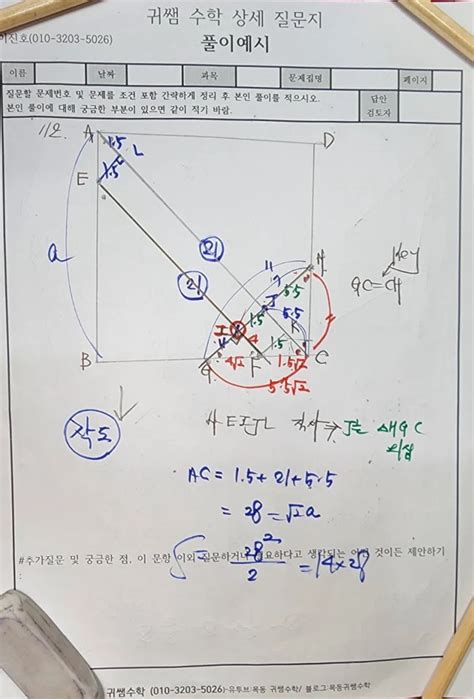 귀쌤 수학 상세 질문지
이진호(010-3203-5026)
풀이예시
이름 날짜 과목 문제집명 페이지
질문할 문제번호 및 문제를 조건 포함 간략하게 정리 후 본인 풀이를 적으시오.
본인 풀이에 대해 궁금한 부분이 있으면 같이 적기 바람.
답안
검토자
112.
A
1.5
L
D
E
1.5
a
21
21
H
11
7
5.5
J
5.5
Key
GC=CH
I
4
1.5
K
4
1.5
B
G
4√2
F
1.5√2
C
5.5√2
작도
□EIJL 직사 ⇒ J는 △HGC
외심
AC = 1.5+21+5.5
= 28 = √2a
S = 28² / 2 = 14×28
#추가질문 및 궁금한 점, 이 문항 이외 질문하거나 필요하다고 생각되는 어떤 것이든 제안하기
귀쌤수학 (010-3203-5026)-유투브:목동 귀쌤수학/ 블로그:목동귀쌤수학